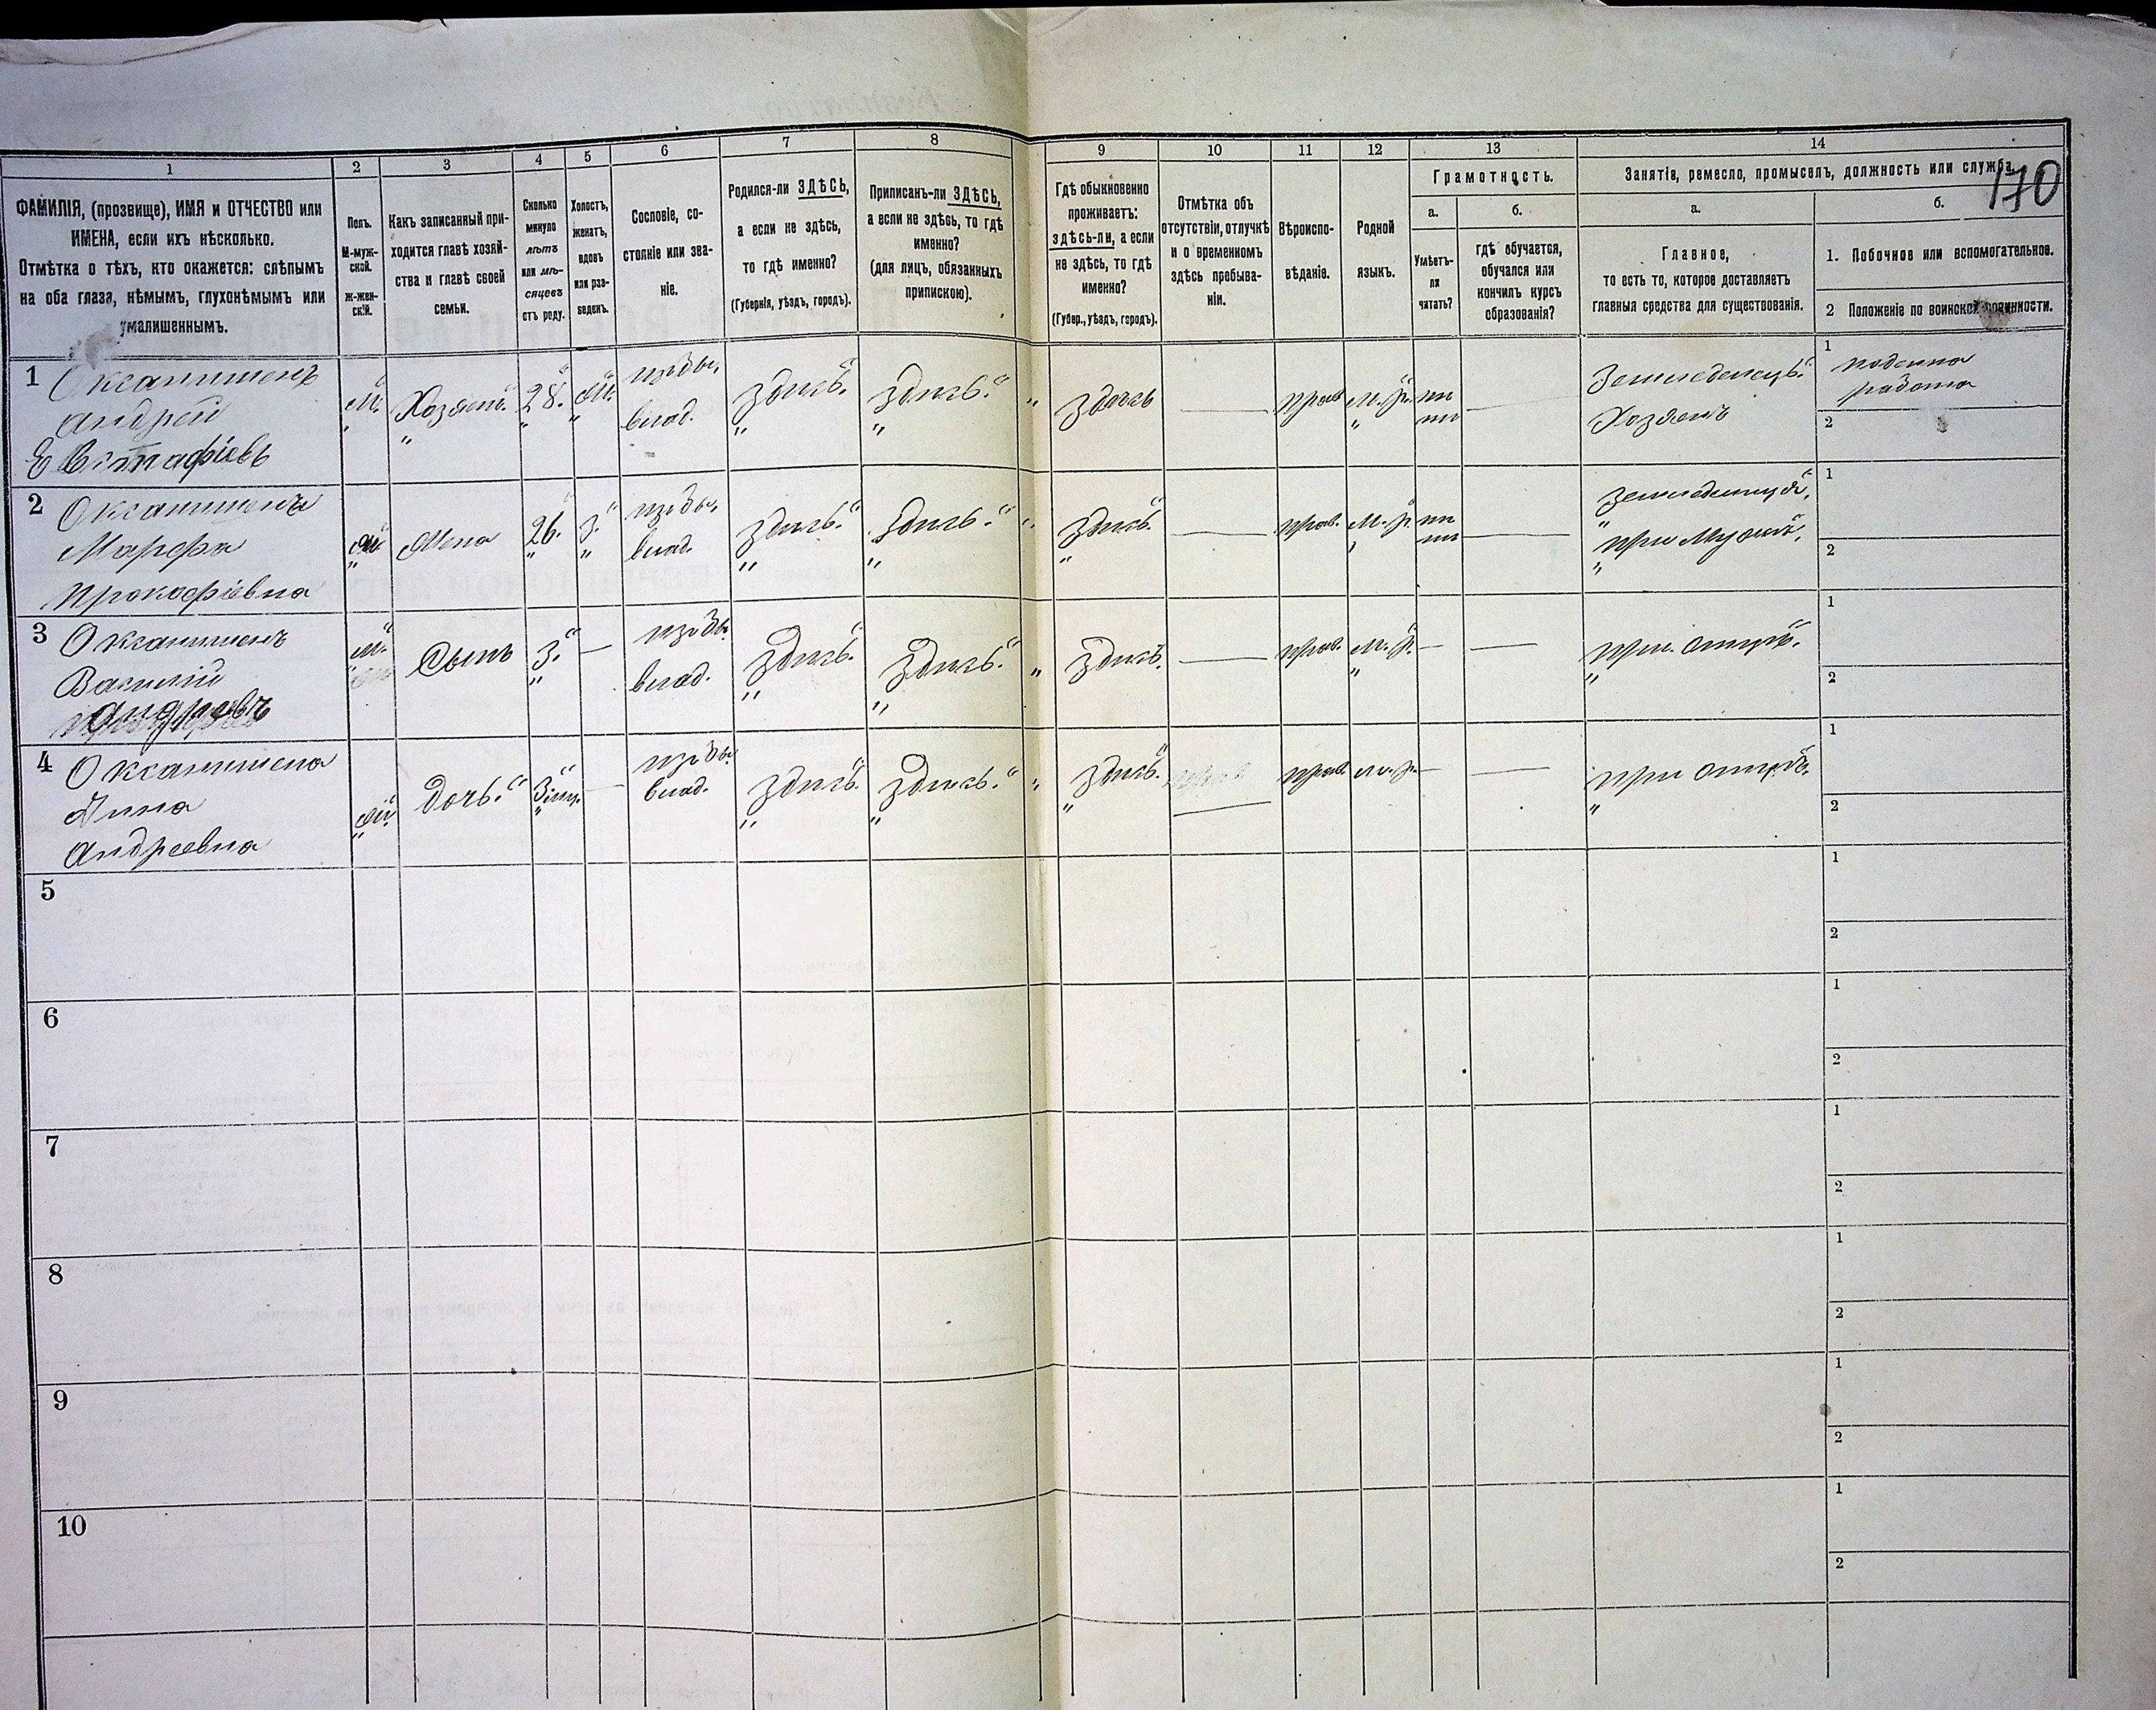 170
1
2
3
4
5
6
7
8
9
10
11
12
13
14
ФАМИЛІЯ, (прозвище), ИМЯ и ОТЧЕСТВО или
ИМЕНА, если ихъ нѣсколько.
Отмѣтка о тѣхъ, кто окажется: слѣпымъ
на оба глаза, нѣмымъ, глухонѣмымъ или
умалишеннымъ.
Полъ.
М-муж-
ской.
ж-жен-
скій.
Какъ записанный при-
ходится главѣ хозяй-
ства и главѣ своей
семьи.
Сколько
минуло
лѣтъ
или мѣ-
сяцевъ
отъ роду.
Холостъ,
женатъ,
вдовъ
или раз-
веденъ.
Сословіе, со-
стояніе или зва-
ніе.
Родился-ли ЗДѢСЬ,
а если не здѣсь,
то гдѣ именно?
(Губернія, уѣздъ, городъ).
Приписанъ-ли ЗДѢСЬ,
а если не здѣсь, то гдѣ
именно?
(для лицъ, обязанныхъ
припискою).
Гдѣ обыкновенно
проживаетъ:
здѣсь-ли, а если
не здѣсь, то гдѣ
именно?
(Губер., уѣздъ, городъ).
Отмѣтка объ
отсутствіи, отлучкѣ
и о временномъ
здѣсь пребыва-
ніи.
Вѣроиспо-
вѣданіе.
Родной
языкъ.
Грамотность.
а.
Умѣетъ-
ли
читать?
б.
гдѣ обучается,
обучался или
кончилъ курсъ
образованія?
Занятіе, ремесло, промыселъ, должность или служба.
а.
Главное,
то есть то, которое доставляетъ
главныя средства для существованія.
б.
1. Побочное или вспомогательное.
2 Положеніе по воинской повинности.
1 Оксанишенъ
Андрей
Евстафіевъ
М. Хозяинъ 28. влад. здись. здись. " здись прав. М. р. ни Земледелецъ
Хозяинъ
1 поденна
работа
2
2
Марфа
Прокофіевна
Жена 26. влад. здись. здись. " здись. прав. М. р. ни
при Мужѣ.
1
2
3 Оксанишенъ
Василій
Андреевъ
м. Сынъ 3. — влад. здись. здись. " здись. — прав. М. р. — — при отцѣ.
1
2
4 Оксанишена
Анна
Андреевна
Дочь. — влад. здись. здись. " здись. — прав. м. р. — — при отцѣ.
1
2
5
1
2
6
1
2
7
1
2
8
1
2
9
1
2
10
1
2